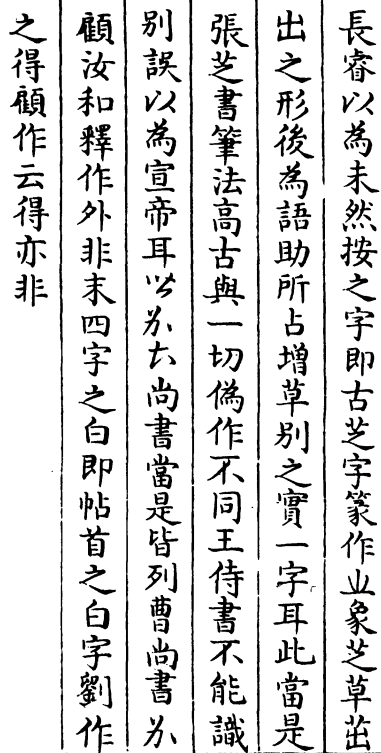 長睿以為未然按之字即古芝字篆作㞢象芝草茁
出之形後為語助所占增草别之實一字耳此當是
張芝書筆法高古與一切偽作不同王侍書不能識
别誤以為宣帝耳 尚書當是皆列曹尚書
顧汝和釋作外非末四字之白即帖首之白字劉作
之得顧作云得亦非